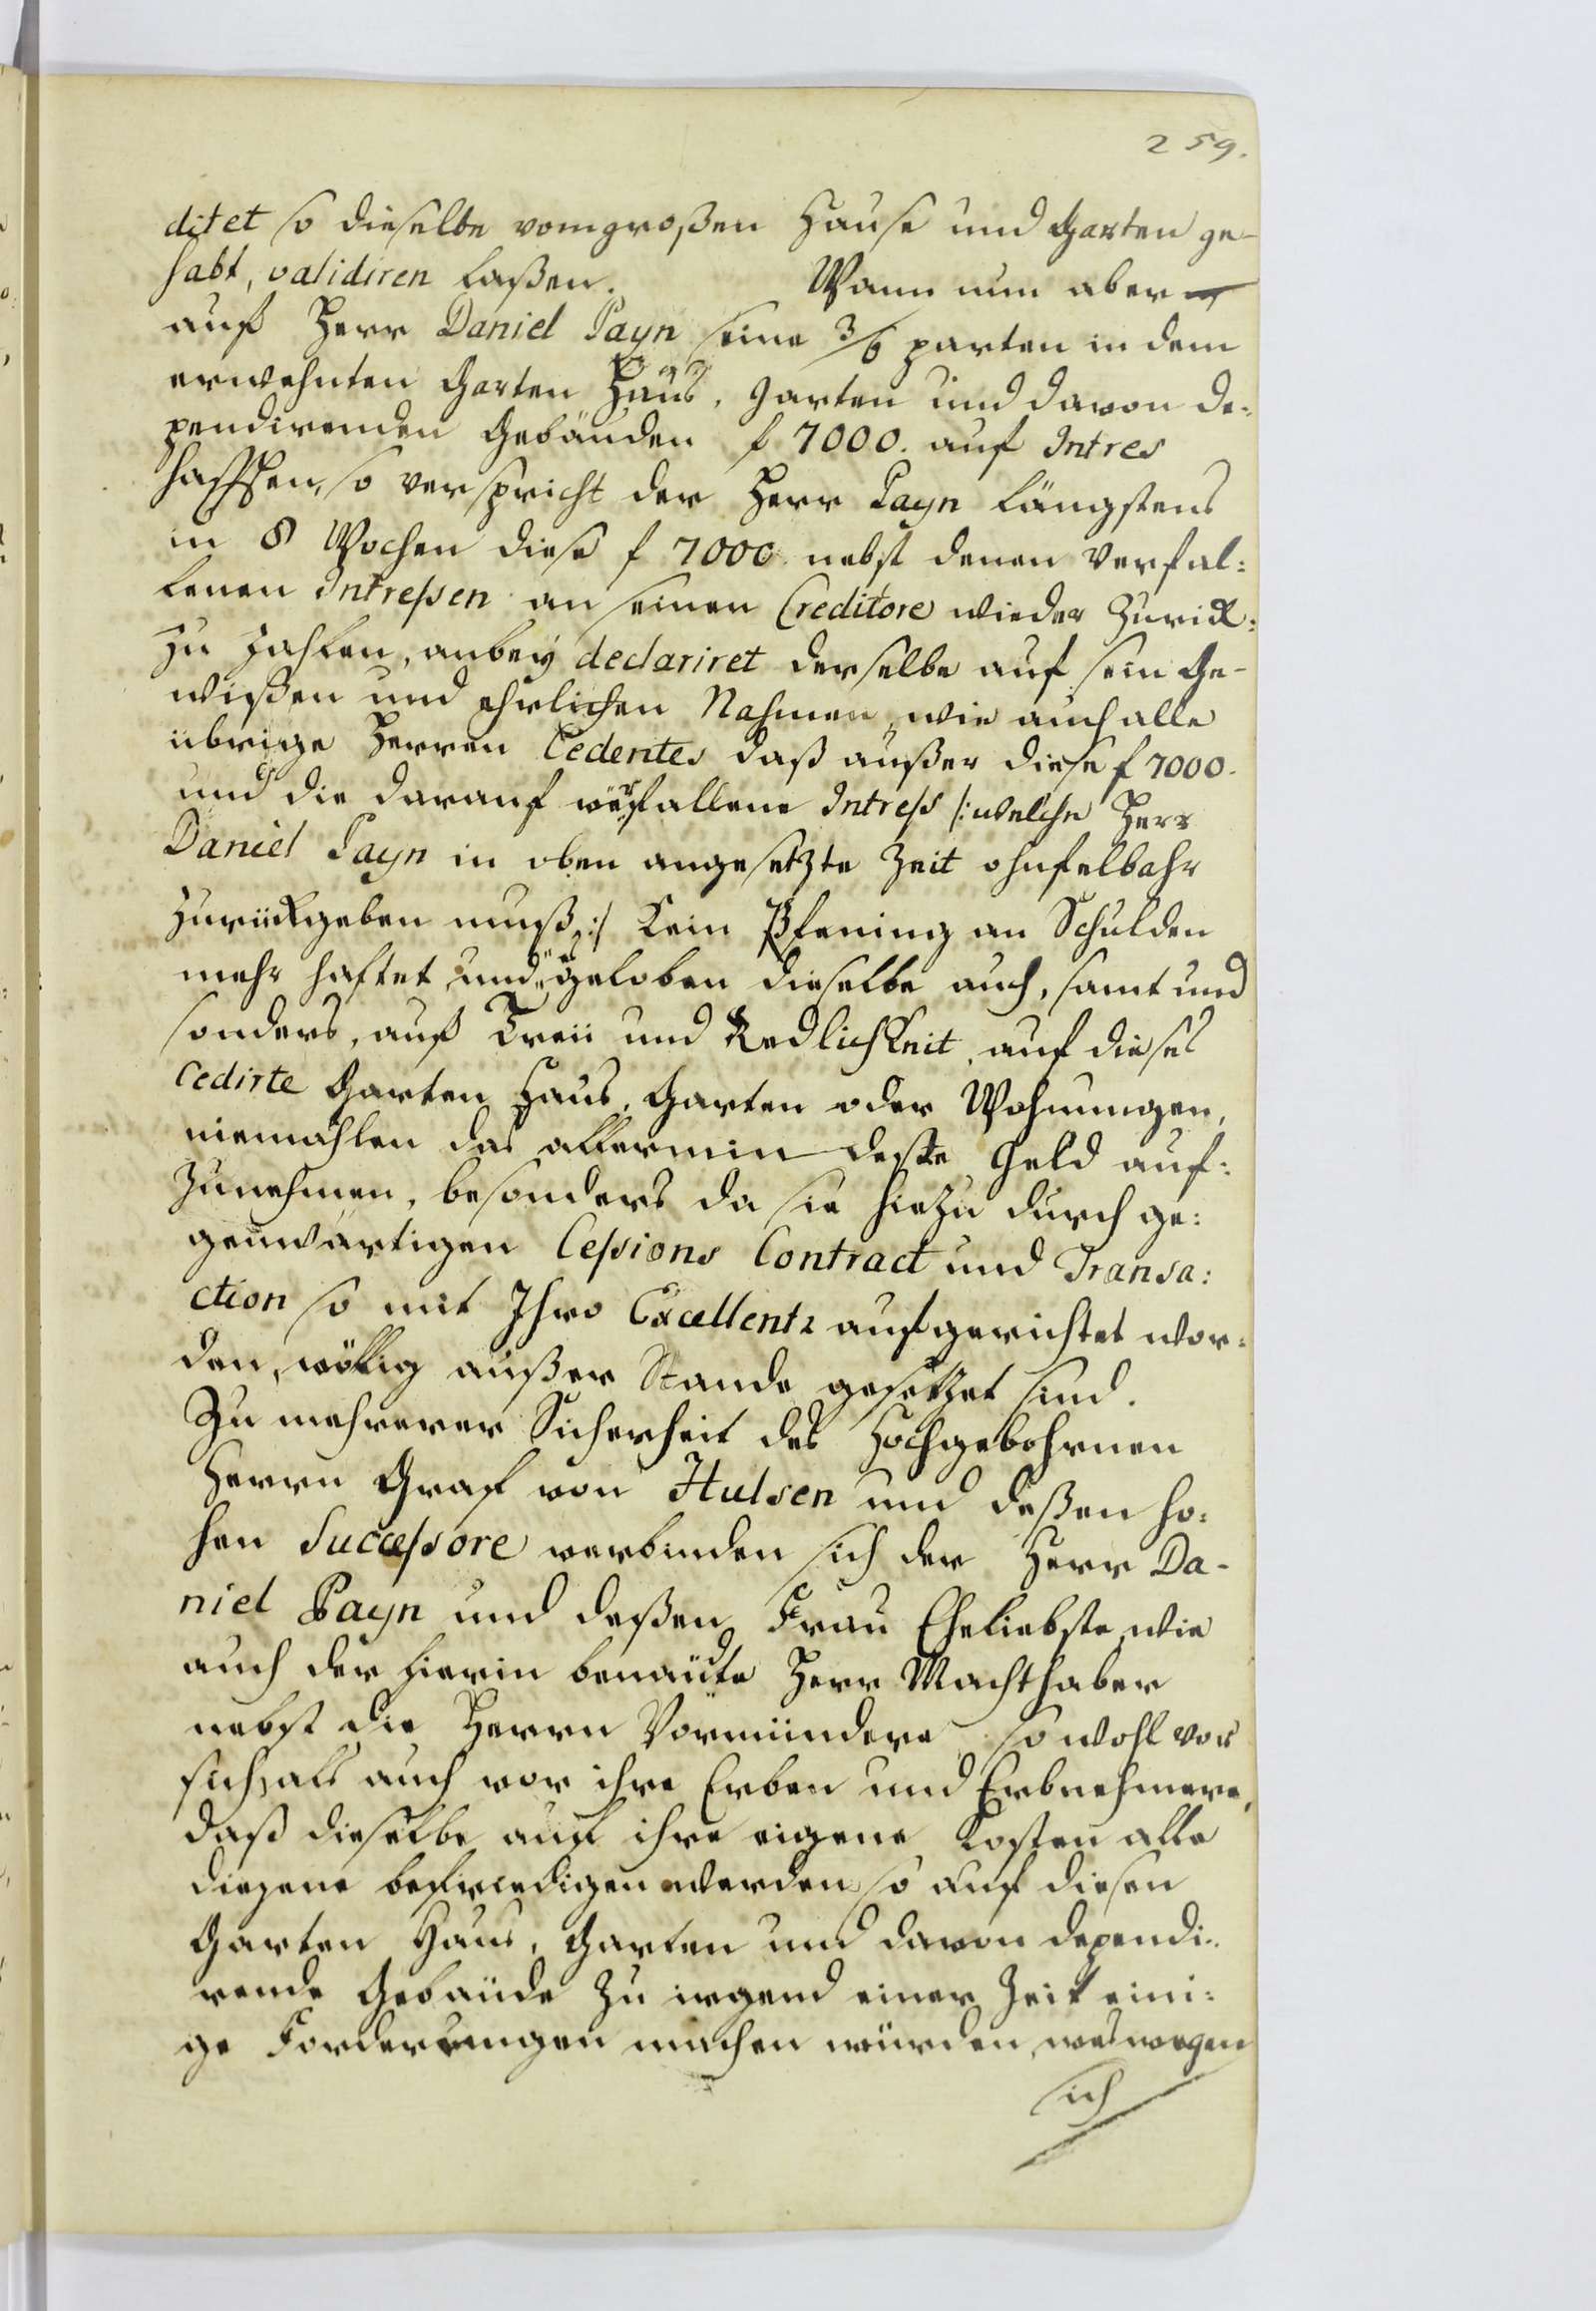 259.
ditet so dieselbe vom großen Hause und Garten ge-
habt, validiren laßen. Wann nun aber
auf Herr Daniel Payn seine 3/6 parten in dem
erwehnten Garten Haus, Garten und davon de:
pendirenden Gebäuden f 7000. auf Intres
hafften, so verspricht der Herr Payn längstens
in 8 Wochen diese f 7000 nebst denen Verfal:
lenen Intreßen an seinen Creditore wieder zurück:
zu zahlen, anbey declariret derselbe auf sein Ge-
wißen und ehrlichen Nahmen, wie auch alle
übrige Herren Cedentes daß außer diese f 7000.
und die darauf verfallene Intress /:welche Herr
Daniel Payn in oben angesetzte Zeit ohnfelbahr
zurückgeben muß :/ Kein Pfening an Schulden
mehr haftet und geloben dieselbe auch, samt und
sonders, auf Treü und Redlichkeit, auf dieses
Cedirte Garten Haus, Garten oder Wohnungen,
niemahlen das allermindeste Geld auf:
zunehmen, besonders da sie hiezu durch ge:
genwärtigen Ceßions Contract und Transa:
ction so mit Ihro Excellentz aufgerichtet wor:
den, völlig außer Stande gesetzet sind.
Zu mehrerer Sicherheit des Hochgebohrnen
Herrn Graf von Hulsen und deßen ho:
hen Successore verbinden sich der Herr Da-
niel Payn und deßen Frau Eheliebste, wie
auch der hierin benante Herr Machthaber
nebst die Herrn Vormündere so wohl vor
sich, als auch vor ihre Erben und Erbnehmere,
daß dieselbe auf ihre eigene Kosten alle
diejene befriedigen werden, so auf diesen
Garten Haus, Garten und davon dependi:
rende Gebäude zu irgend einer Zeit eini:
ge Forderungen machen würden, weswegen
sich